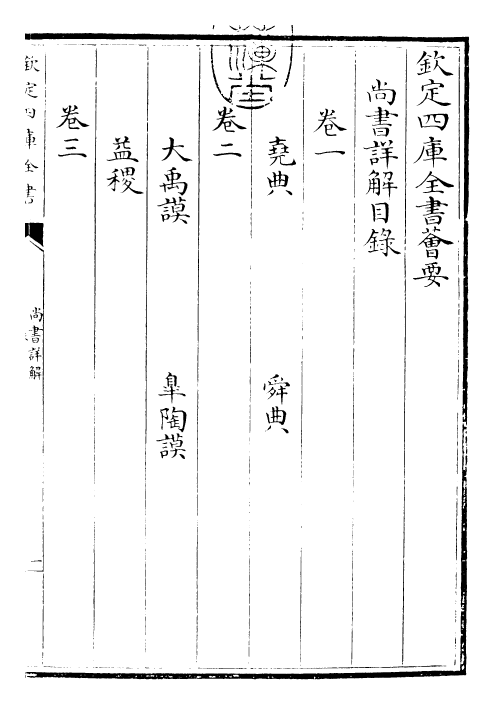 欽定四庫全書薈要
尚書詳解目錄
卷一
堯典 舜典
卷二
大禹謨 皐陶謨
益稷
卷三
欽定四庫全書
尚書詳解
一